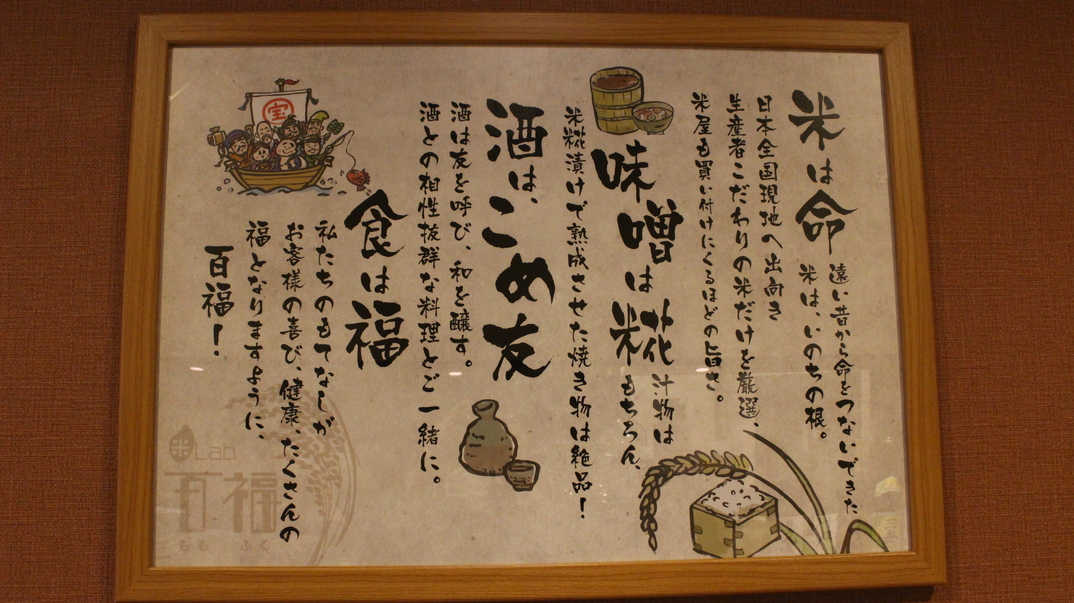 米は命
遠い昔から命をつないできた
米は、いのちの根。
日本全国現地へ出向き
生産者こだわりの米だけを厳選、
米屋も買い付けにくるほどの旨さ。
味噌は糀
汁物は
もちろん、
米糀漬けで熟成させた焼き物は絶品！
酒は、こめ友
酒は友を呼び、和を醸す。
酒との相性抜群な料理とご一緒に。
食は福
私たちのもてなしが
お客様の喜び、健康、たくさんの
福となりますように、
百福！
宝
米Lab
百福
ももふく